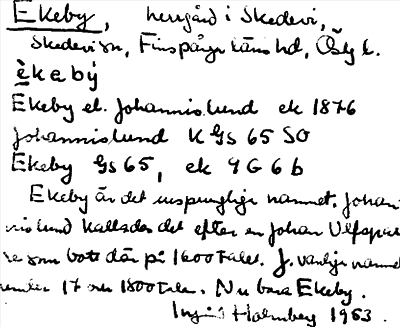 Ekeby, herrgård i Skedevi,
Skedevi sn, Finspånga läns hd, Östg l.
èkebý
Ekeby el. Johannislund ek 1876
Johannislund K Gs 65 SO
Ekeby Gs 65, ek 9 G 6 b
Ekeby är det ursprungliga namnet. Johan
nislund kallades det efter en Johan Ulfspar
re som bott där på 1600 talet. J. vanliga namnet
under 17 och 1800 talen. Nu bara Ekeby.
Ingrid Holmberg 1953.